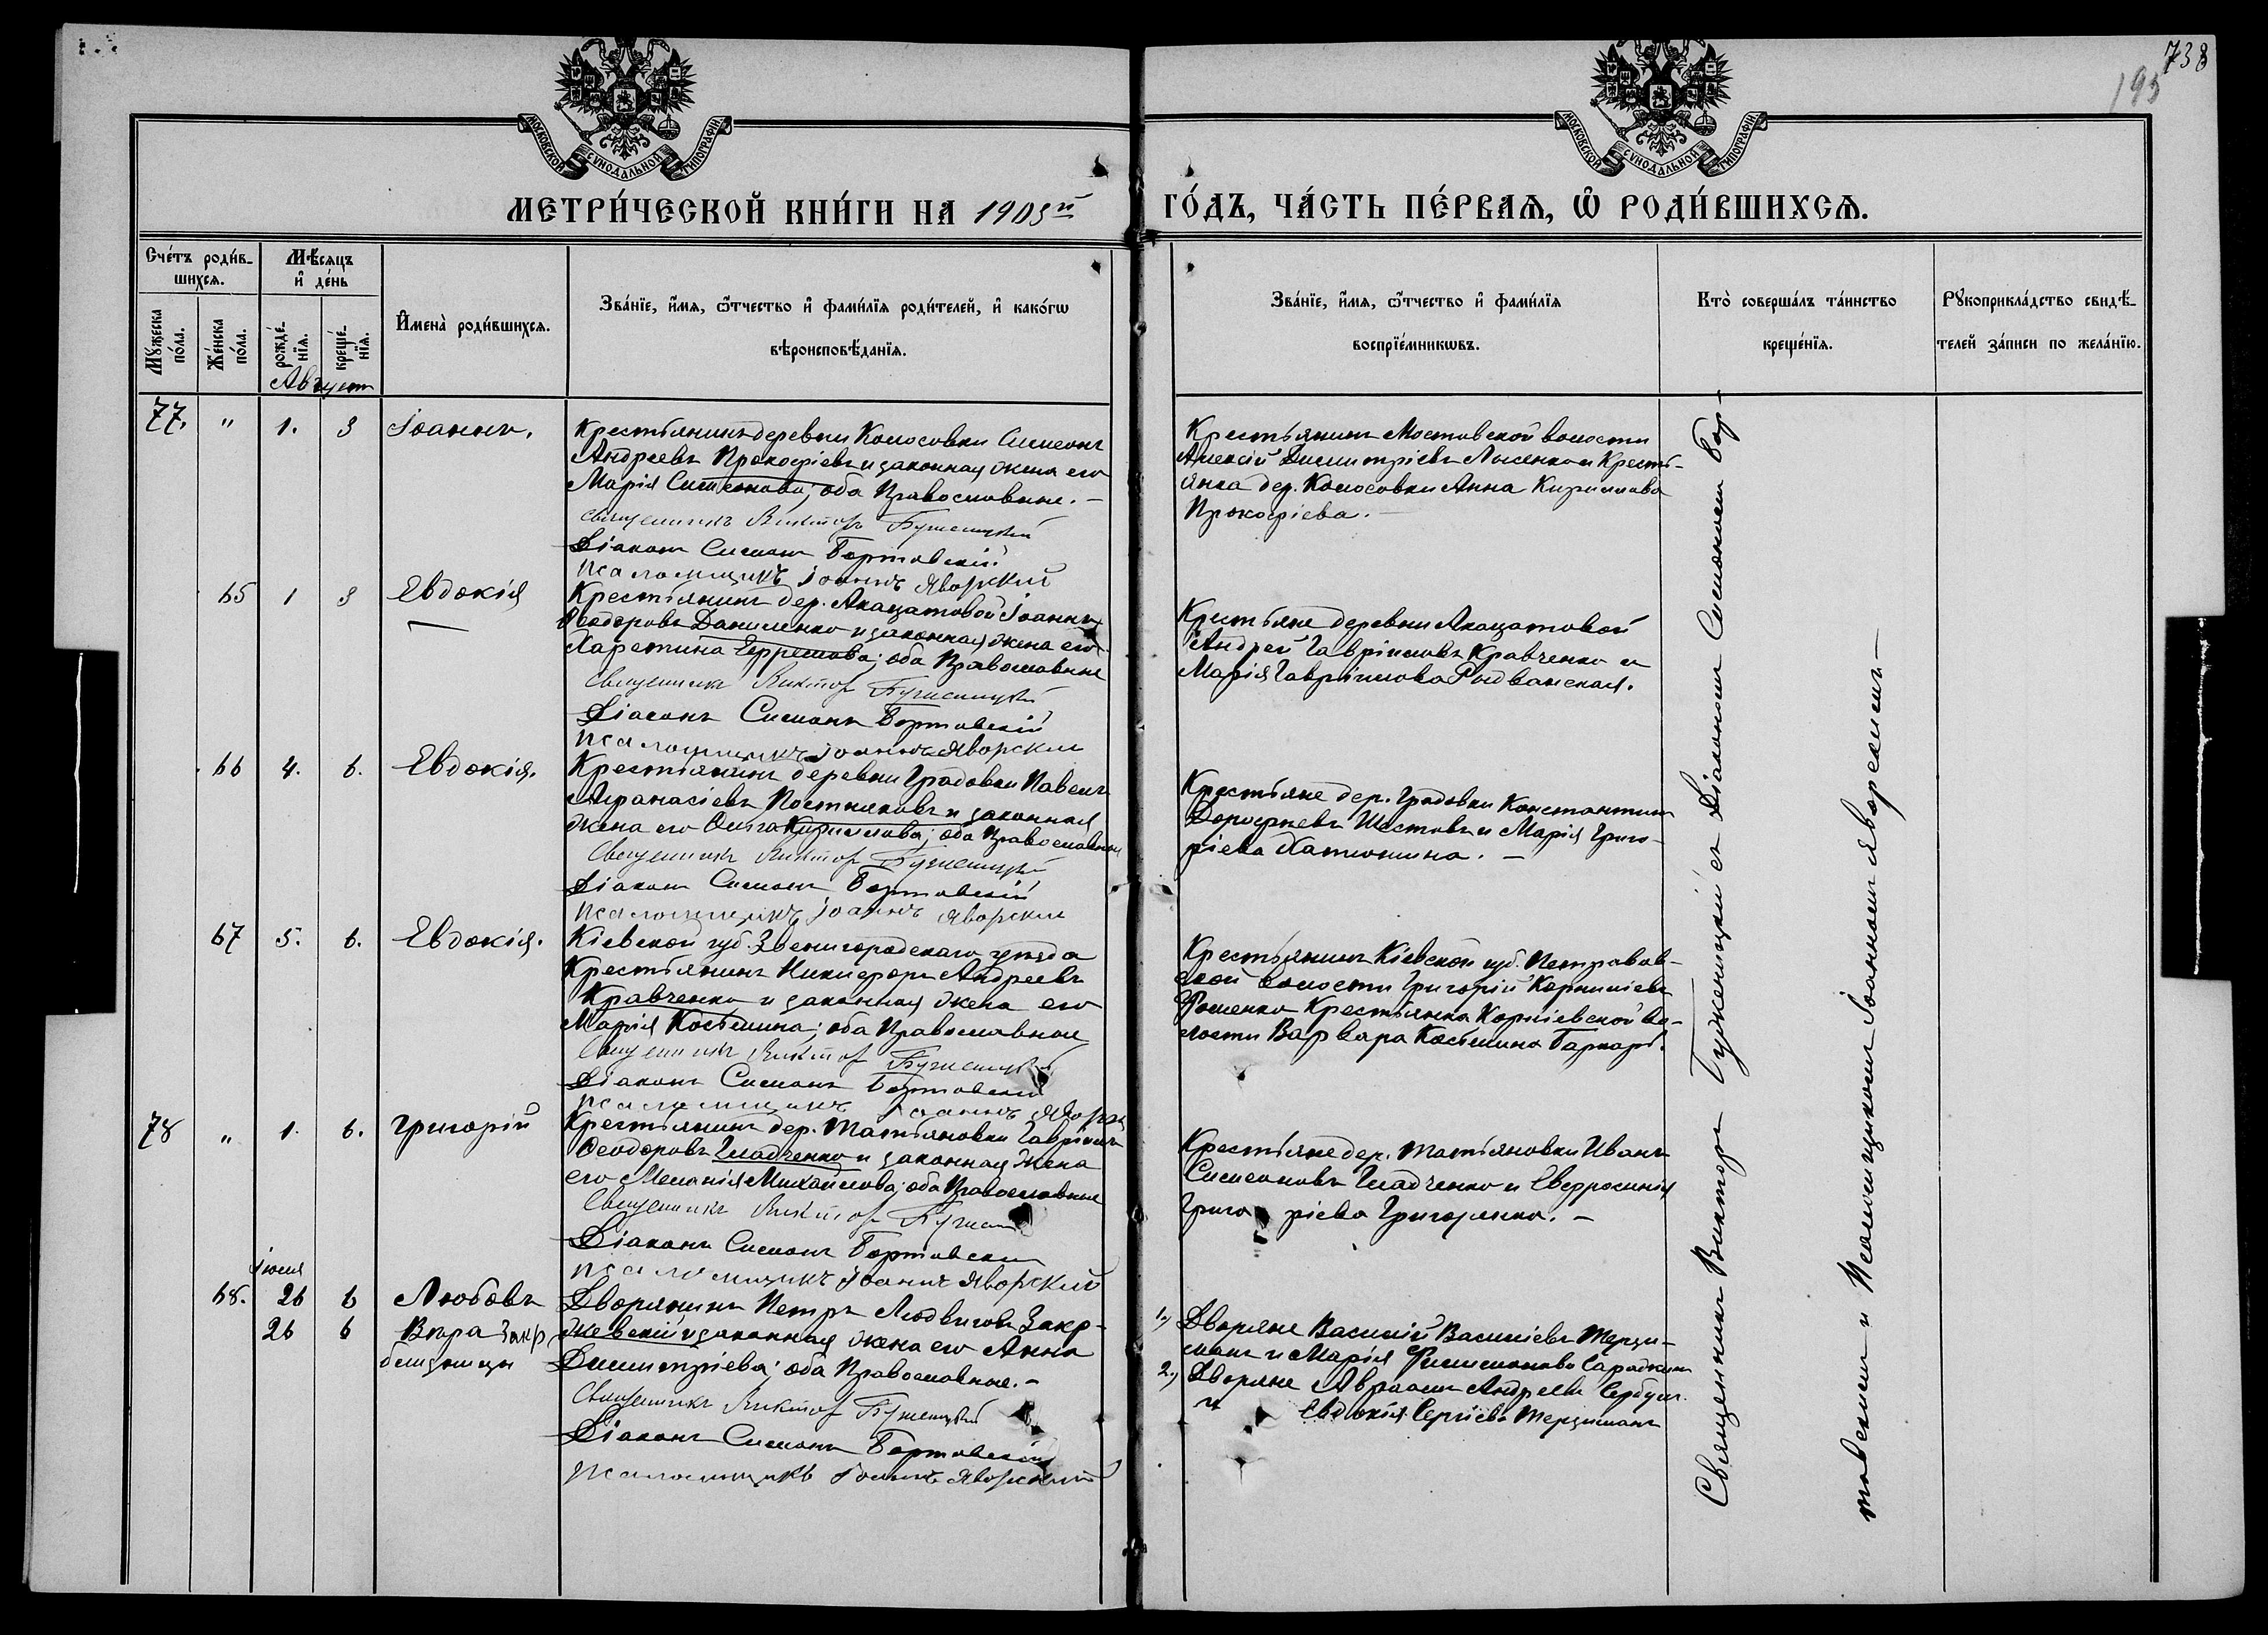 738
195
МОСКОВСКОЙ СѴНОДАЛЬНОЙ ТИПОГРАФІИ
МОСКОВСКОЙ СѴНОДАЛЬНОЙ ТИПОГРАФІИ
МЕТРИ́ЧЕСКОЙ КНИ́ГИ НА 1903й ГО́ДЪ, ЧА́СТЬ ПЕ́РВАѦ, Ѡ҆ РОДИ́ВШИХСѦ.
Сче́тъ роди́в-
шихсѧ.
Мꙋ́жеска по́ла.
Же́нска по́ла.
Мѣ́сѧцъ
и҆ де́нь
рожде́-
нїѧ.
креще́-
нїѧ.
И҆мена̀ роди́вшихсѧ.
Зва́нїе, и҆́мѧ, ѻ҆́тчество и҆ фами́лїѧ роди́телей, и҆ како́гѡ
вѣроисповѣ́данїѧ.
Зва́нїе, и҆́мѧ, ѻ҆́тчество и҆ фами́лїѧ
воспрїе́мникѡвъ.
Кто̀ соверша́лъ та́инство
креще́нїѧ.
Рꙋкоприкла́дство свидѣ́-
телей за́писи по жела́нїю.
Августъ
77. " 1. 3 Іоаннъ.
Крестьянинъ деревни Колосовки Симеонъ
Андреевъ Прокофіевъ и законная жена его
Марія Симеонова; оба Православные. -
Священникъ Викторъ
Діаконъ Симеонъ Бортовскій
Псаломщикъ Іоаннъ Яворскій
Крестьянинъ Мостовской волости
Алексій Димитріевъ Лысенко и Кресть-
янка дер. Колосовки Анна Кириллова
Прокофіева. -
65 1 3 Евдокія
Крестьянинъ дер. Акацатовой Іоаннъ
Ѳеодоровъ Даниленко и законная жена его
Харитина Ефремова; оба Православные
Священникъ Викторъ
Діаконъ Симеонъ Бортовскій
Псаломщикъ Іоаннъ Яворскій
Крестьяне деревни Акацатовой
Андрей Гавріиловъ Кравченко и
Марія Гавріилова Рыдванская.
66 4. 6. Евдокія.
Крестьянинъ деревни Градовки Павелъ
Аѳанасіевъ Постниковъ и законная
жена его Ольга Кириллова; оба Православные
Священникъ Викторъ
Діаконъ Симеонъ Бортовскій
Псаломщикъ Іоаннъ Яворскій
Крестьяне дер. Градовки Константинъ
Дорофеевъ Шостовъ и Марія Григо-
ріева. -
67 5. 6. Евдокія.
Кіевской губ. Звенигородскаго уѣзда
Крестьянинъ Никифоръ Андреевъ
Кравченко и законная жена его
Марія Косьмина; оба Православные
Священникъ Викторъ
Діаконъ Симеонъ Бортовскій
Псаломщикъ Іоаннъ
Крестьянинъ Кіевской губ. Петровов-
ской волости Григорій Корниліевъ
Крестьянка Корніевской во-
лости Варвара Косьмина
78 " 1. 6. Григорій
Крестьянинъ дер. Татьяновки Гавріилъ
Ѳеодоровъ Гладченко и законная жена
его Меланія Михайлова; оба Православные
Священникъ Викторъ
Діаконъ Симеонъ Бортовскій
Псаломщикъ Іоаннъ Яворскій
Крестьяне дер. Татьяновки Иванъ
Симеоновъ Гладченко и Евфросинія
Григоріева Григоренко. -
Іюля
68. 26 6 Любовь
26 6 Вѣра
близнецы
Дворянинъ Петръ Людвиговъ Закр-
жевскій и законная жена его Анна
Димитріева; оба Православные. -
Священникъ Викторъ
Діаконъ Симеонъ Бортовскій
Псаломщикъ Іоаннъ Яворскій
1.) Дворяне Василій Василіевъ Терци-
манъ и Марія
2.) Дворяне Авраамъ Андреевъ
и Евдокія Сергіева Терциманъ
Священникъ Викторъ съ Діакономъ Симеономъ Бор-
товскимъ и Псаломщикомъ Іоанномъ Яворскимъ -